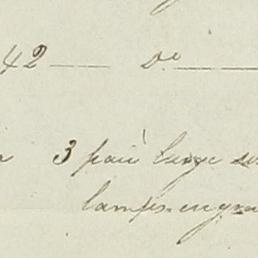 42 — Do —
3 pair large
lamps engra